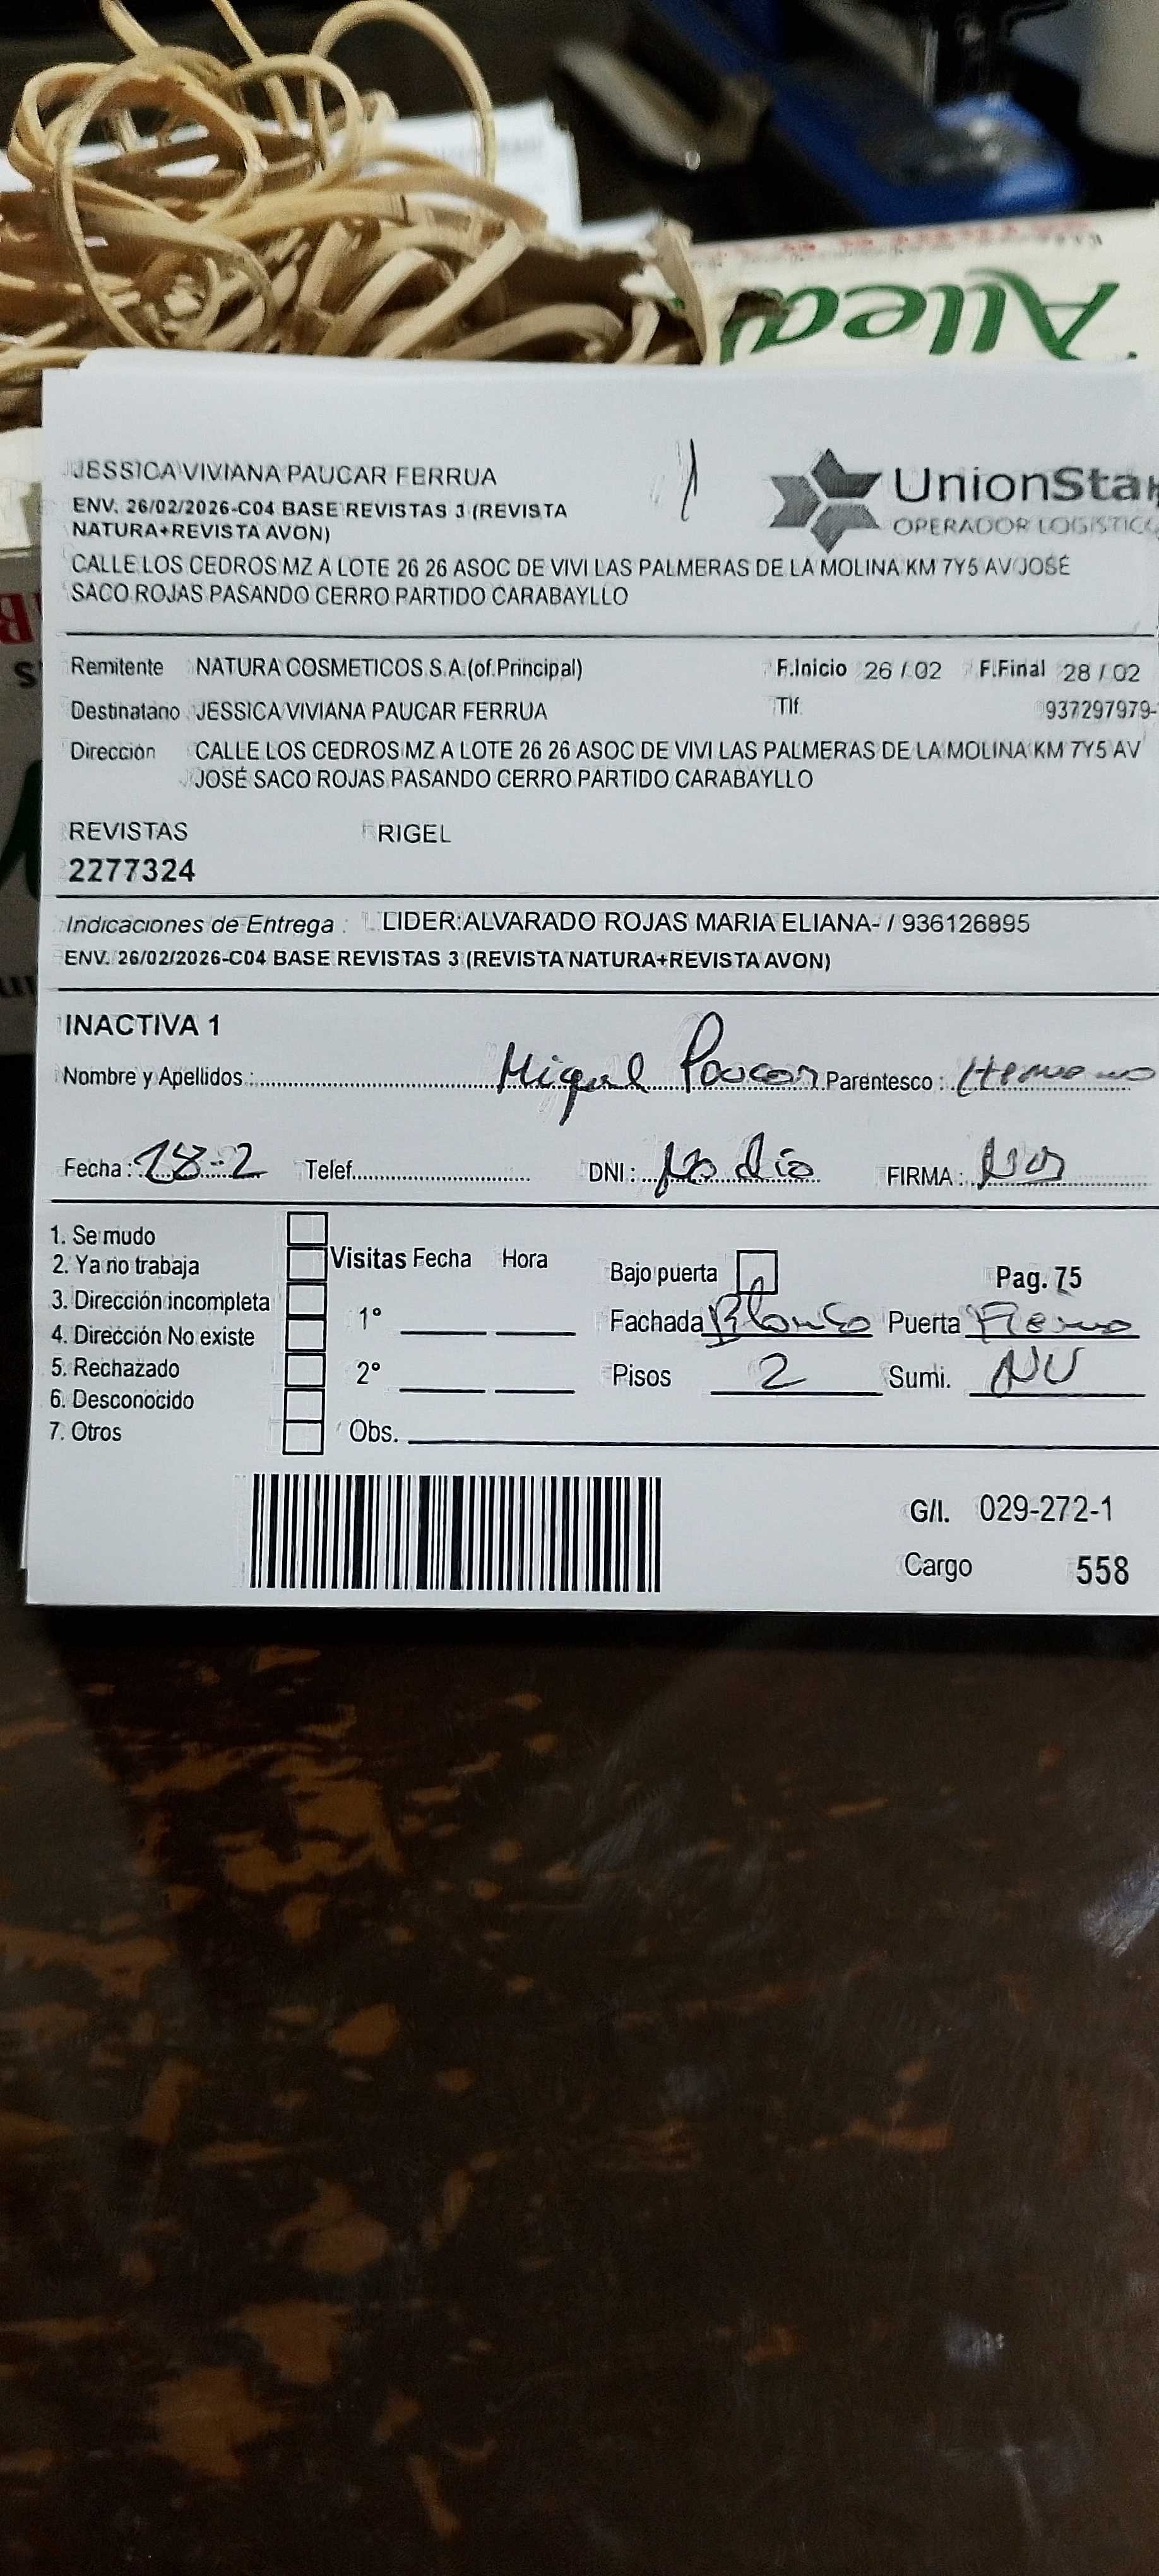 Allea
JESSICA VIVIANA PAUCAR FERRUA
ENV. 26/02/2026-C04 BASE REVISTAS 3 (REVISTA
NATURA+REVISTA AVON)
UnionSta
OPERADOR LOGISTIC
CALLE LOS CEDROS MZ A LOTE 26 26 ASOC DE VIVI LAS PALMERAS DE LA MOLINA KM 7Y5 AV JOSÉ
SACO ROJAS PASANDO CERRO PARTIDO CARABAYLLO
Remitente NATURA COSMETICOS S.A.(of.Principal) F.Inicio 26 / 02 F.Final 28 / 02
Destinatario JESSICA VIVIANA PAUCAR FERRUA Tlf 937297979-
Dirección CALLE LOS CEDROS MZ A LOTE 26 26 ASOC DE VIVI LAS PALMERAS DE LA MOLINA KM 7Y5 AV
JOSÉ SACO ROJAS PASANDO CERRO PARTIDO CARABAYLLO
REVISTAS RIGEL
2277324
Indicaciones de Entrega : LIDER:ALVARADO ROJAS MARIA ELIANA- / 936126895
ENV. 26/02/2026-C04 BASE REVISTAS 3 (REVISTA NATURA+REVISTA AVON)
INACTIVA 1
Nombre y Apellidos : Miguel Paucar Parentesco : Hermano
Fecha : 28-2 Telef. DNI : No dio FIRMA :
1. Se mudo
2. Ya no trabaja
3. Dirección incompleta
4. Dirección No existe
5. Rechazado
6. Desconocido
7. Otros
Visitas Fecha Hora
1°
2°
Obs.
Bajo puerta Pag. 75
Fachada Blanco Puerta Fierro
Pisos 2 Sumi. NV
G/I. 029-272-1
Cargo 558